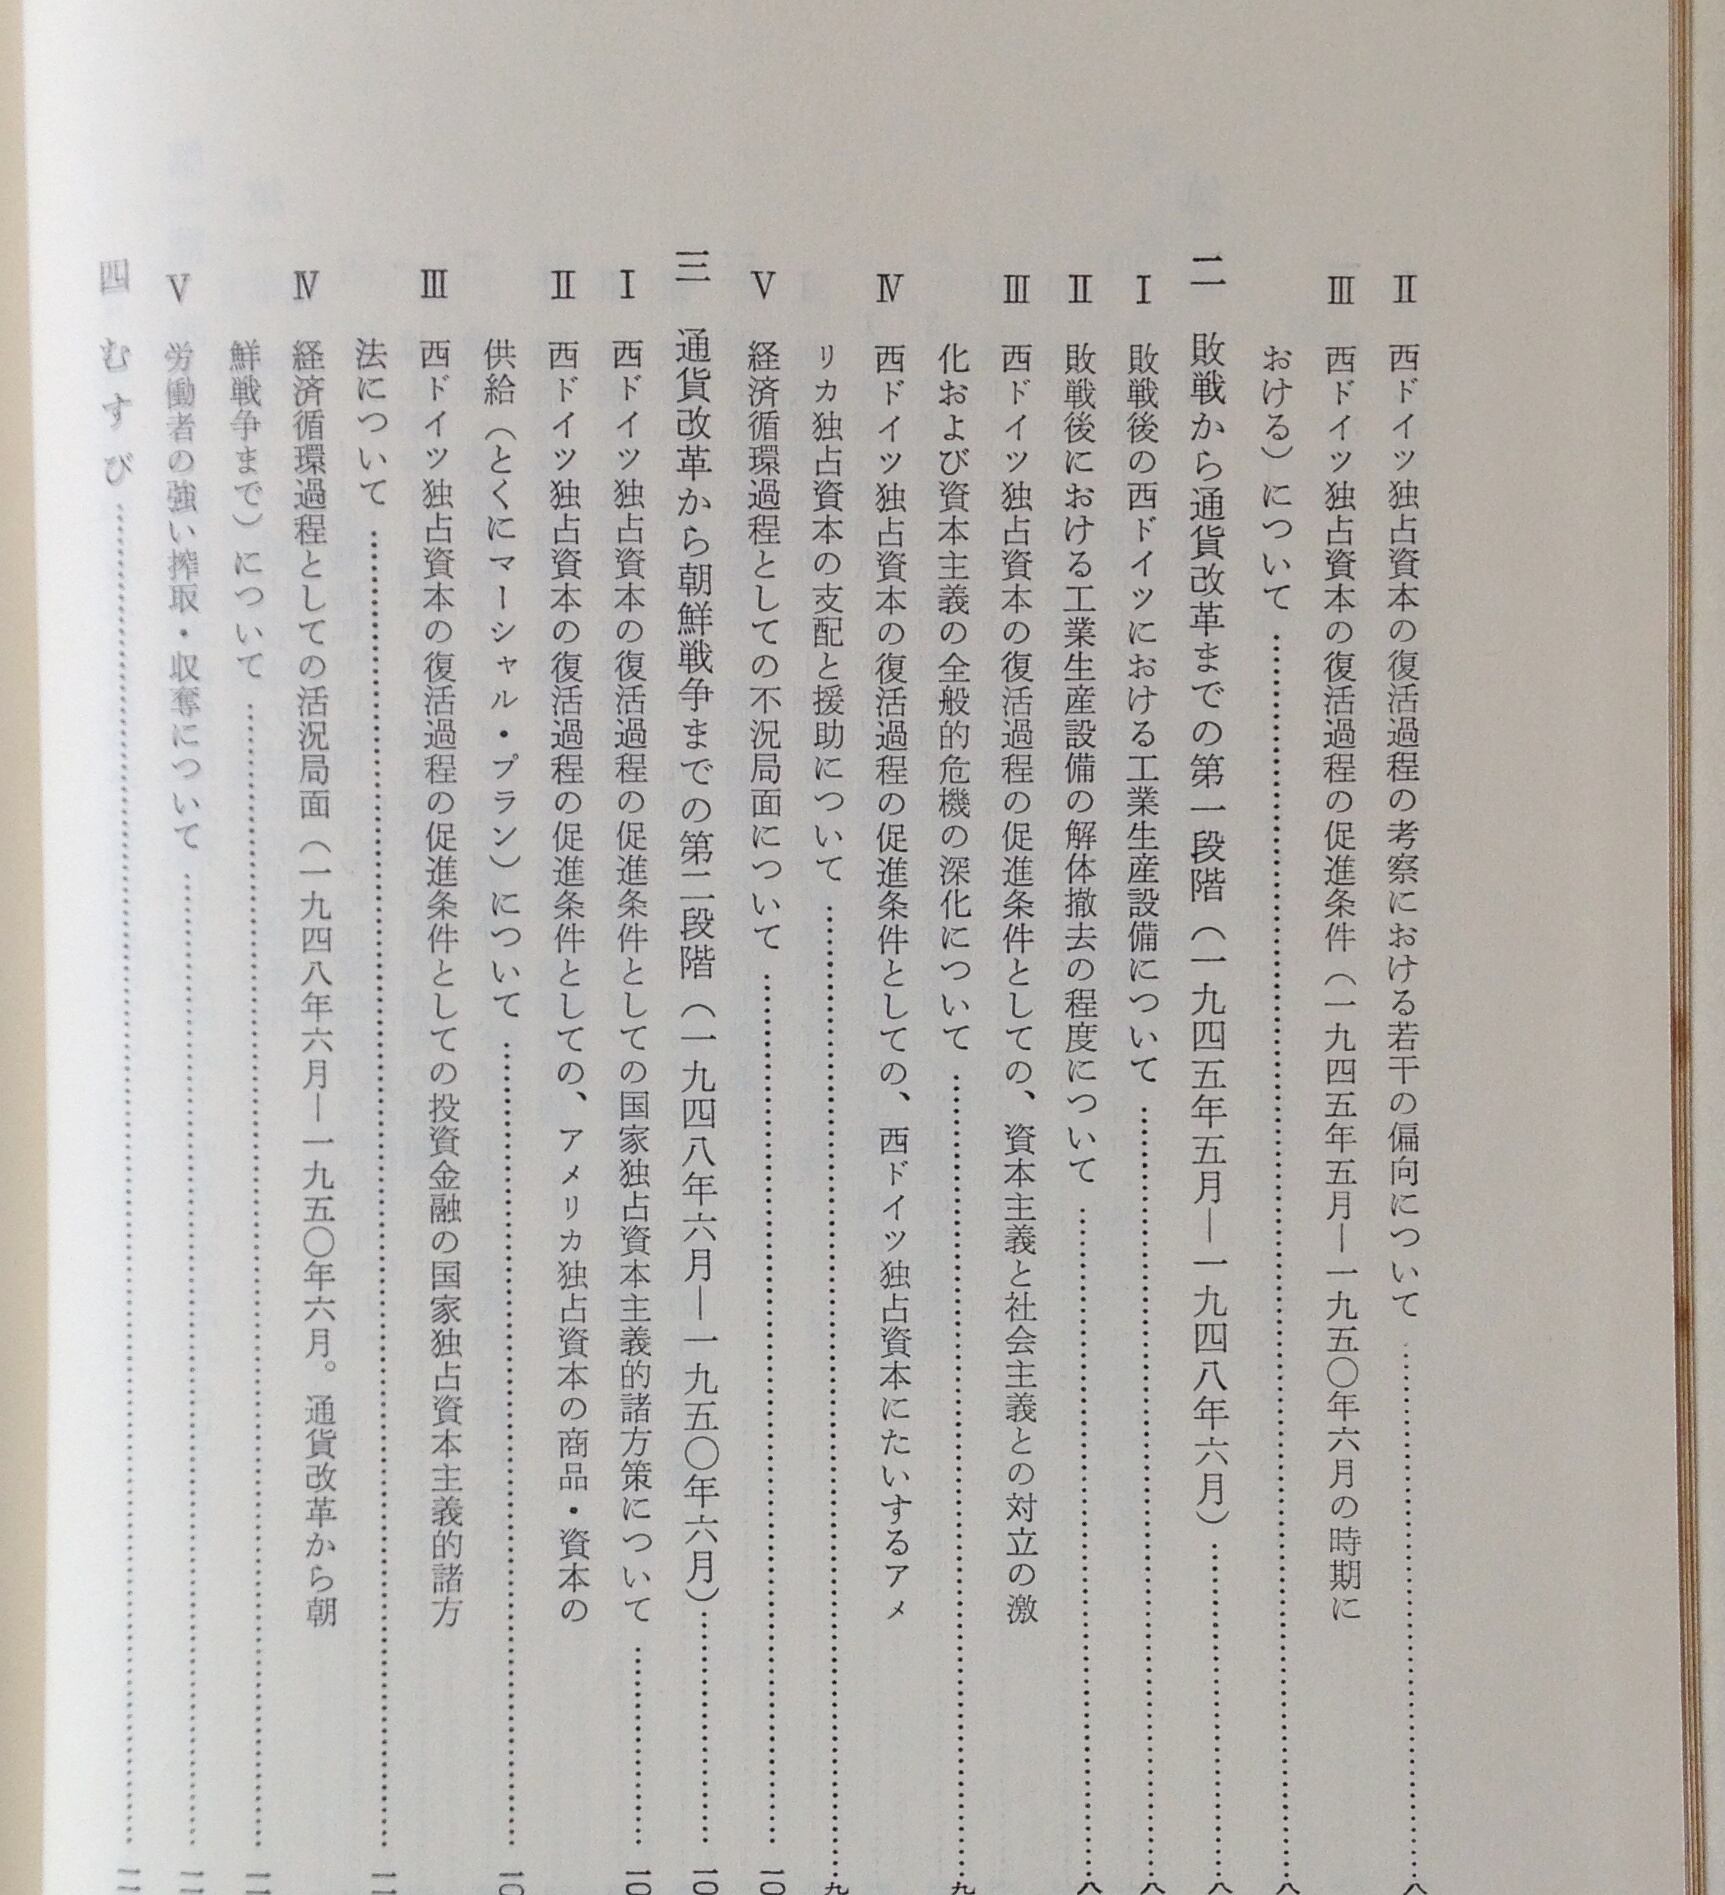 Ⅱ 西ドイツ独占資本の復活過程の考察における若干の偏向について……八
Ⅲ 西ドイツ独占資本の復活過程の促進条件（一九四五年五月―一九五〇年六月の時期に
おける）について……八
二 敗戦から通貨改革までの第一段階（一九四五年五月―一九四八年六月）……八
Ⅰ 敗戦後の西ドイツにおける工業生産設備について……八
Ⅱ 敗戦後における工業生産設備の解体撤去の程度について……八
Ⅲ 西ドイツ独占資本の復活過程の促進条件としての、資本主義と社会主義との対立の激
化および資本主義の全般的危機の深化について……九
Ⅳ 西ドイツ独占資本の復活過程の促進条件としての、西ドイツ独占資本にたいするアメ
リカ独占資本の支配と援助について……九
Ⅴ 経済循環過程としての不況局面について……一〇
三 通貨改革から朝鮮戦争までの第二段階（一九四八年六月―一九五〇年六月）……一〇
Ⅰ 西ドイツ独占資本の復活過程の促進条件としての国家独占資本主義的諸方策について……一〇
Ⅱ 西ドイツ独占資本の復活過程の促進条件としての、アメリカ独占資本の商品・資本の
供給（とくにマーシャル・プラン）について……一〇
Ⅲ 西ドイツ独占資本の復活過程の促進条件としての投資金融の国家独占資本主義的諸方
法について……一
Ⅳ 経済循環過程としての活況局面（一九四八年六月―一九五〇年六月。通貨改革から朝
鮮戦争まで）について……一
Ⅴ 労働者の強い搾取・収奪について……一
四 むすび……一